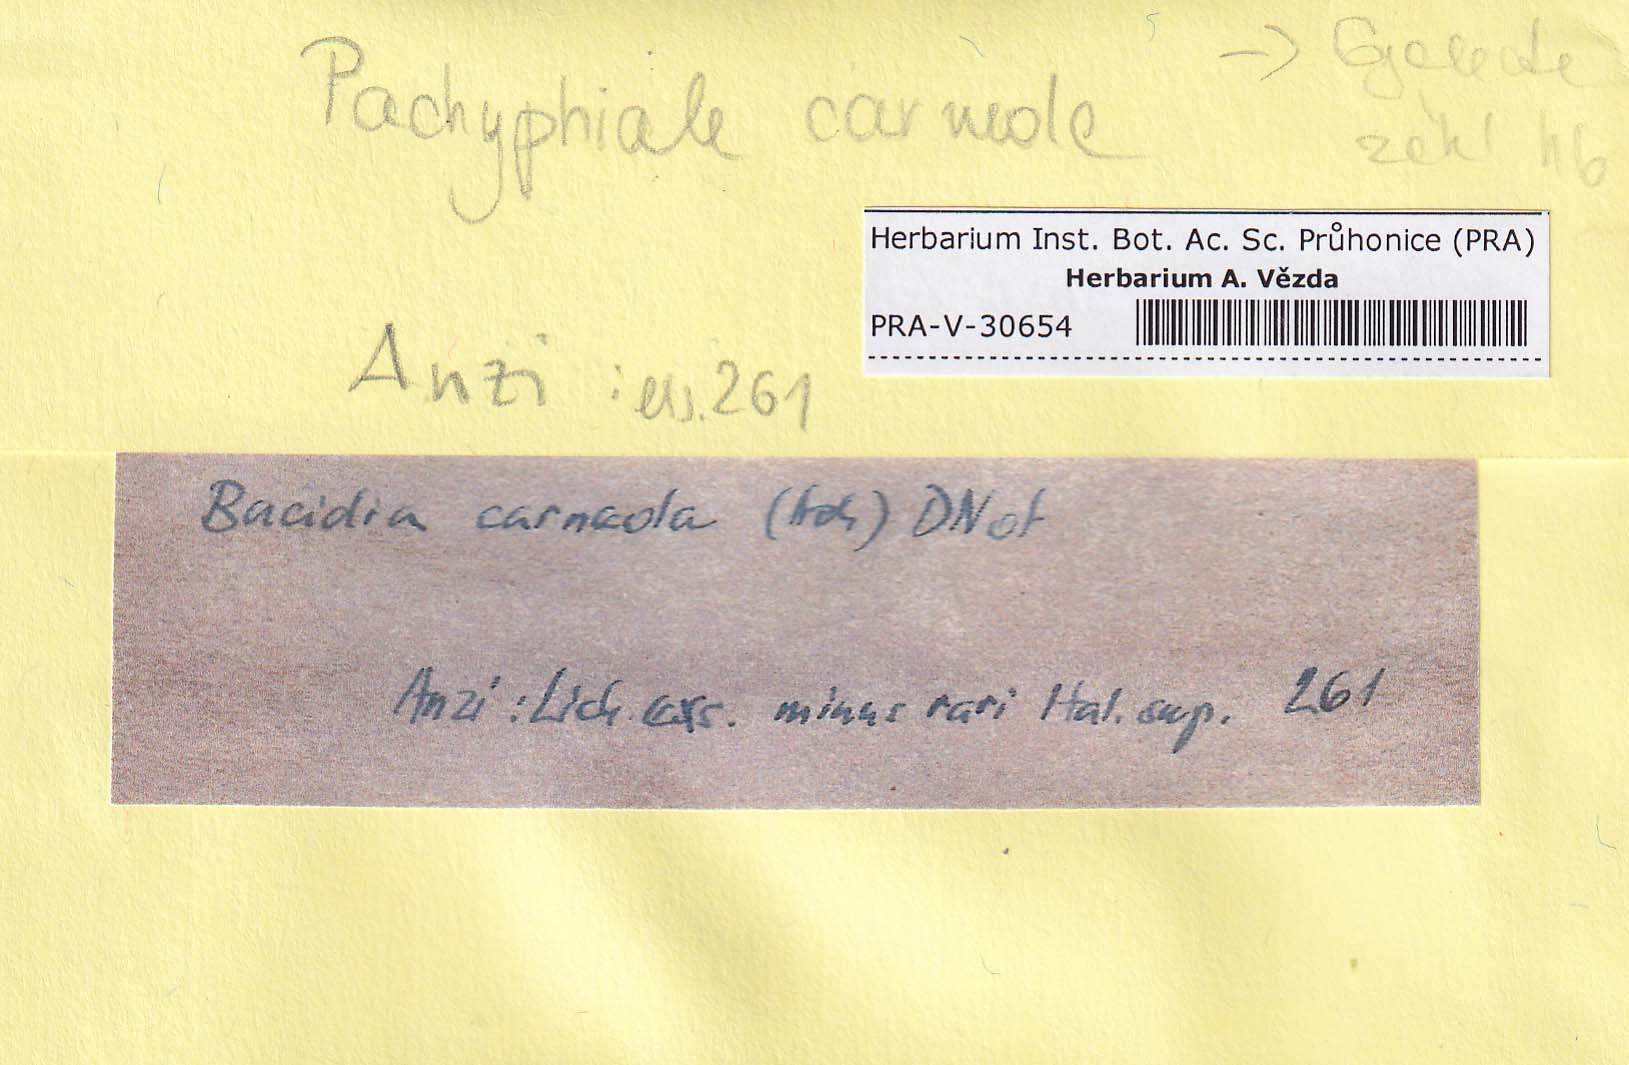 Pachyphiale carneole
→
Herbarium Inst. Bot. Ac. Sc. Průhonice (PRA)
Herbarium A. Vězda
PRA-V-30654
Anzi : 261
Bacidia carneola (Ach) DNot
Anzi : Lich. exs. minus rari Ital. sup. 261